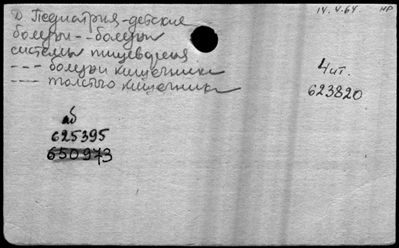 Д. Педиатрия - детские
14.V.64. НР
болезни - - болезни
системы пищеварения
--- болезни кишечника
---- толстого кишечника
Чит.
623820
аб
625395
650973